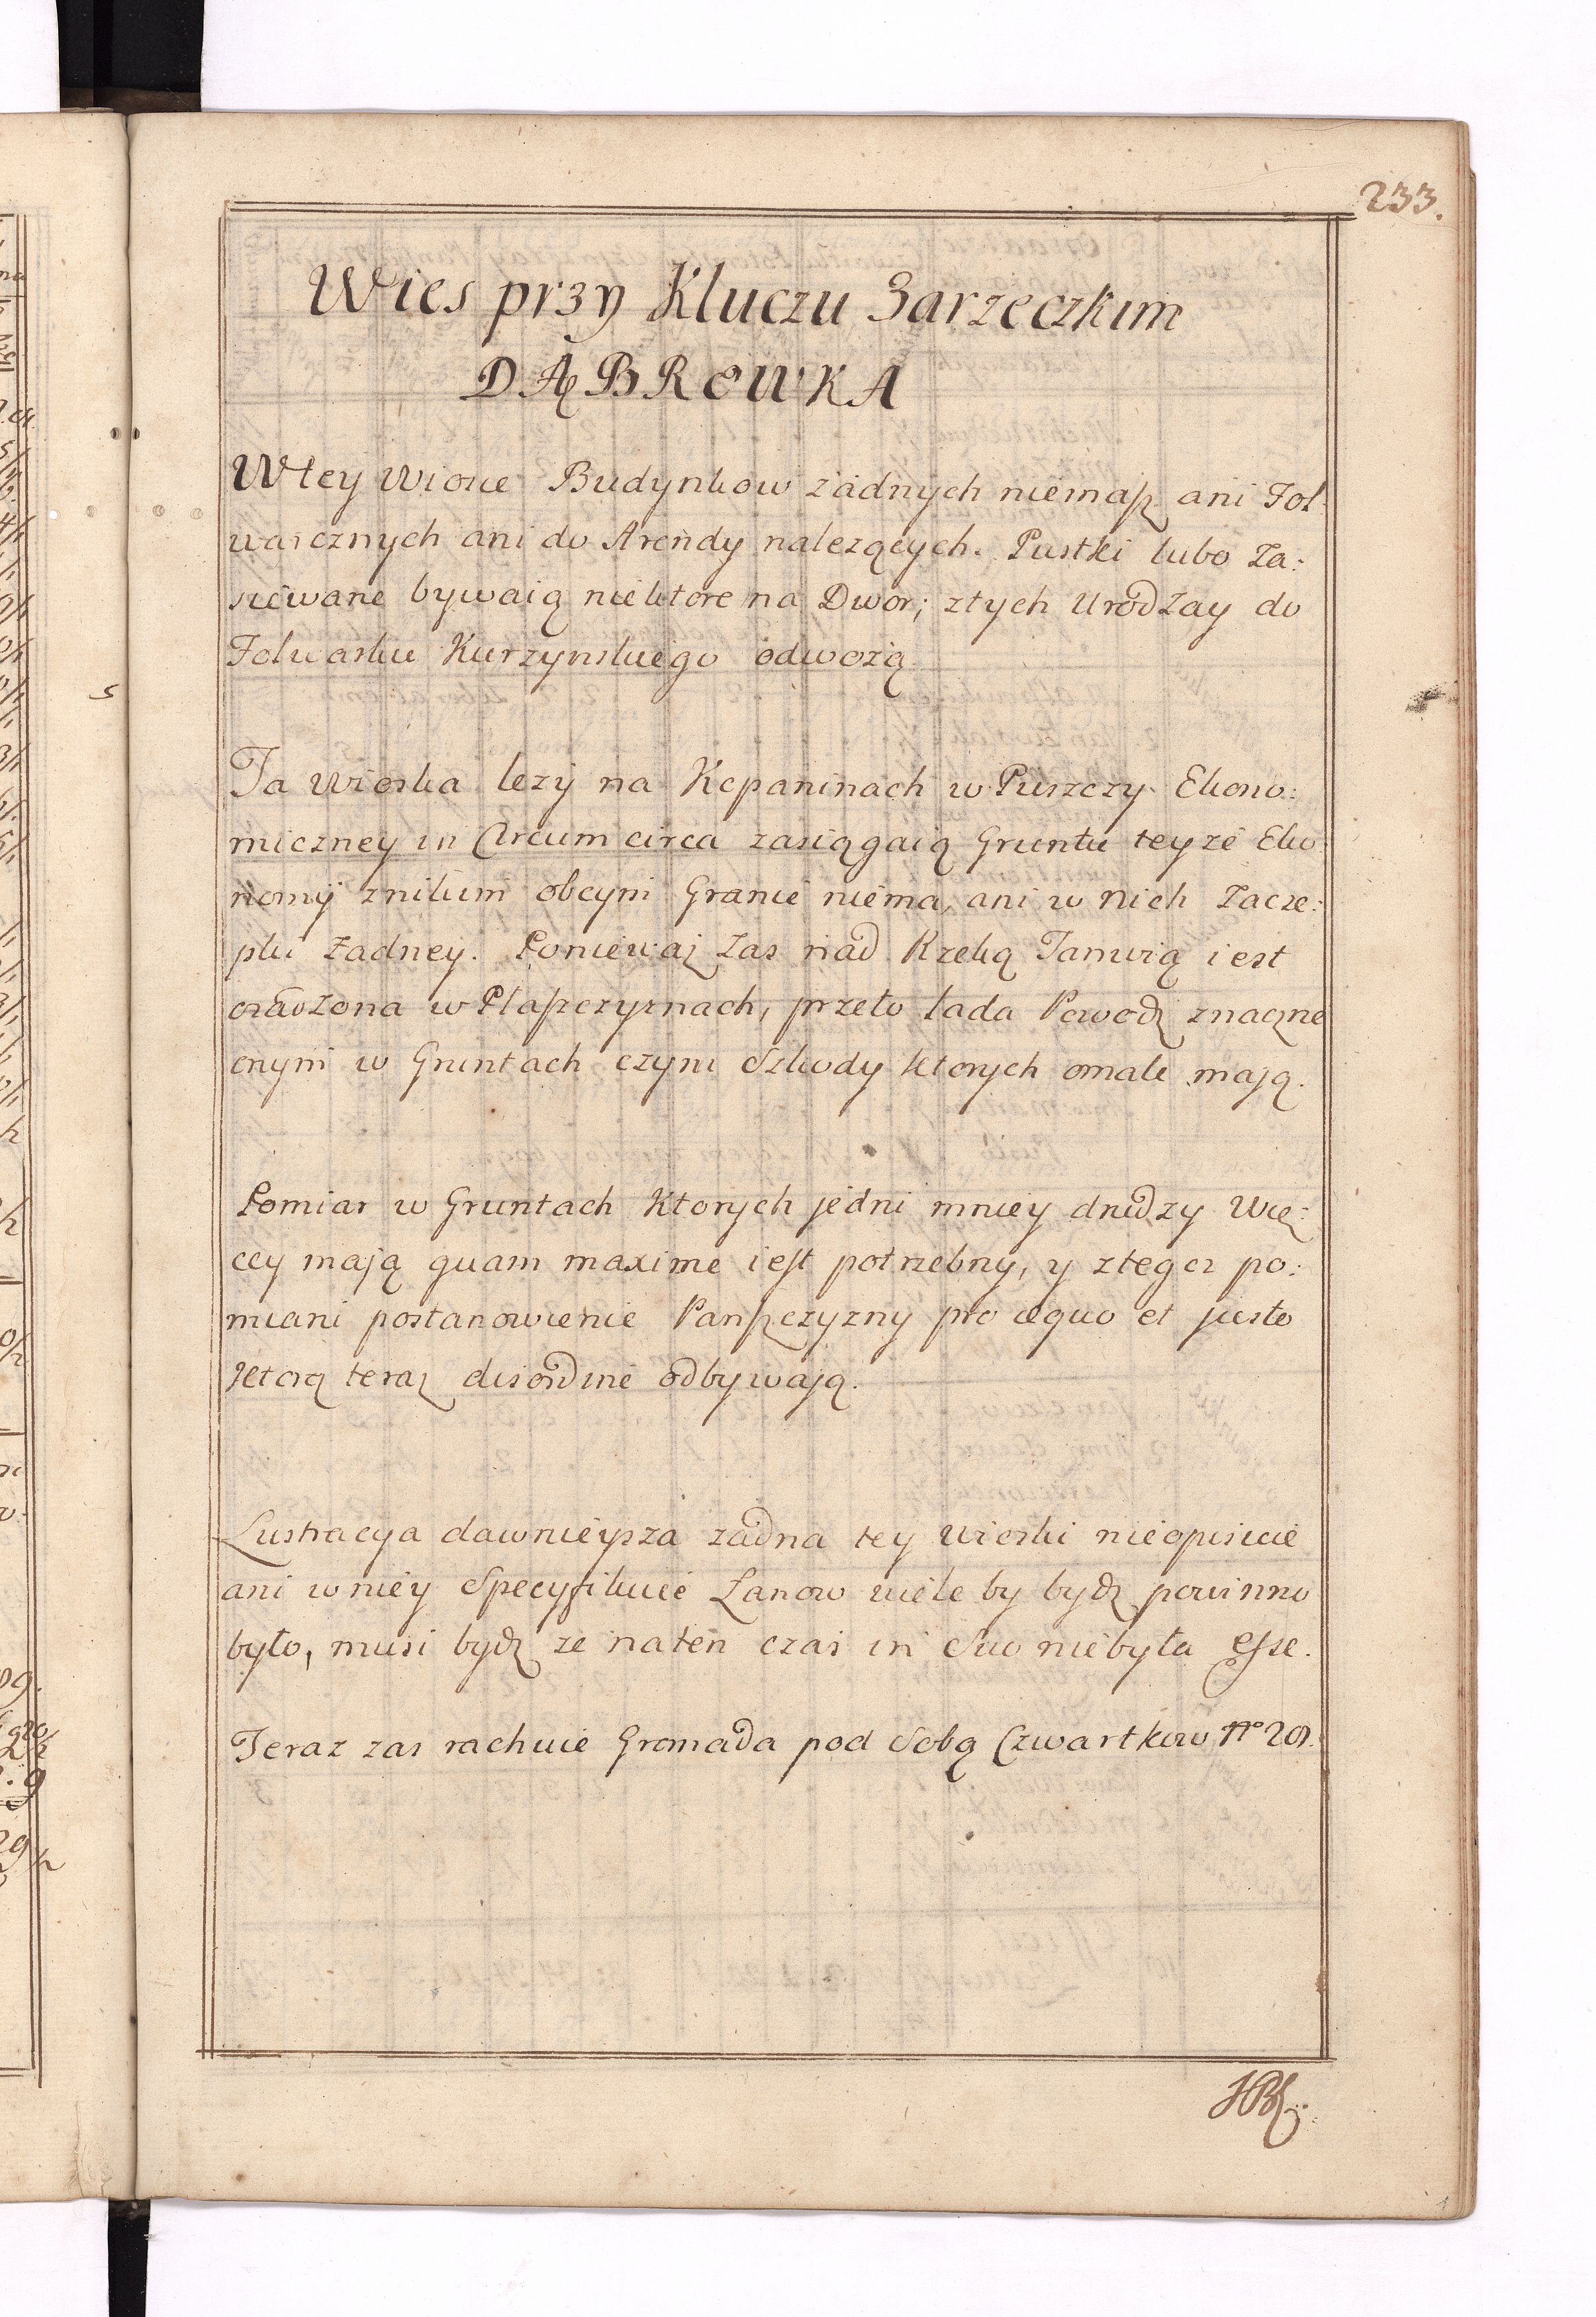 233.
Wies przy Kluczu Zarzeczkim
DĄBROWKA
Wtey Wiosce Budynkow zadnych niemasz ani Fol:
warcznych ani do Arendy nalezących. Pustki lubo Za:
siewane bywaią niektore na Dwor; ztych Urodzay do
Folwarku Kurzynskiego odwozą.
Ta Wioska lezy na Kopaninach w Puszczy Ekono:
miczney in Circum circa zasiągaią Gruntu teyze Eko:
nomij znikim obcym Granic niema, ani w nich Zacze:
pki Zadney. Poniewaz Zas nad Rzeką Tanwią iest
osadzona w Płaszczyznach, przeto lada Powodz znaczne
onym w Gruntach czyni Szkody ktorych omale mają.
Pomiar w Gruntach Ktorych jedni mniey drudzy Wię:
cey mają quam maxime iest potrzebny, y ztego po:
miaru postanowienie Panszczyzny pro aequo et justo
Ktorą teraz disordine odbywają.
Lustracya dawnieysza zadna tey Wioski nieopisuie
ani w niey Specyfikuie Łanow wiele by bydz powinno
było, musi bydz ze naten czas in Suo niebyła Esse.
Teraz zas rachuie Gromada pod Sobą Czwartkow No